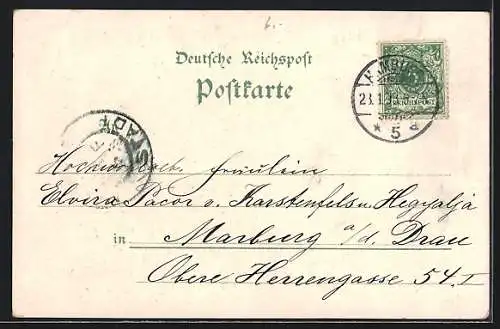 6.
Deutsche Reichspost
Postkarte
HAMBURG
5
STADT
Hochwohlgeb. Fräulein
Elvira Pacor v. Karstenfels u. Hegyalja
in Marburg a/d. Drau
Obere Herrengasse 54. I